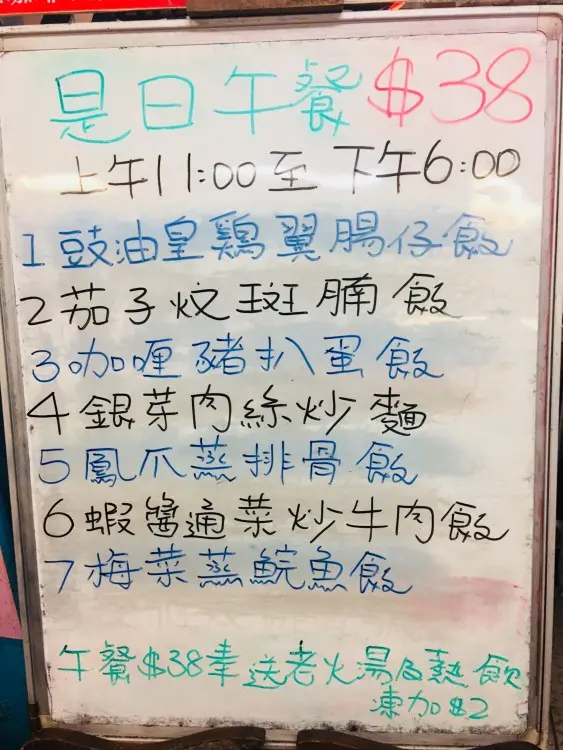 是日午餐 $38
上午11:00至下午6:00
1豉油皇鷄翼腸仔飯
2茄子炆斑腩飯
3咖喱豬扒蛋飯
4銀芽肉絲炒麵
5鳳爪蒸排骨飯
6蝦醬通菜炒牛肉飯
7梅菜蒸鯇魚飯
午餐$38奉送老火湯及熱飲
凍加$2